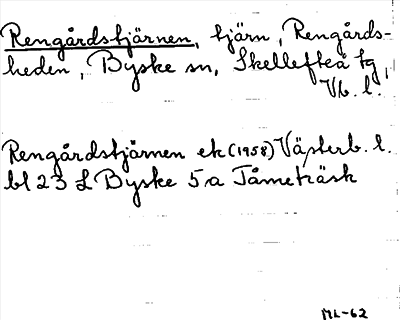 Rengårdstjärnen, tjärn, Rengårds-
heden, Byske sn, Skellefteå tg,
Vb. l.
Rengårdstjärnen ek (1958) Västerb. l.
bl 23 L Byske 5a Tåmeträsk
ML-62